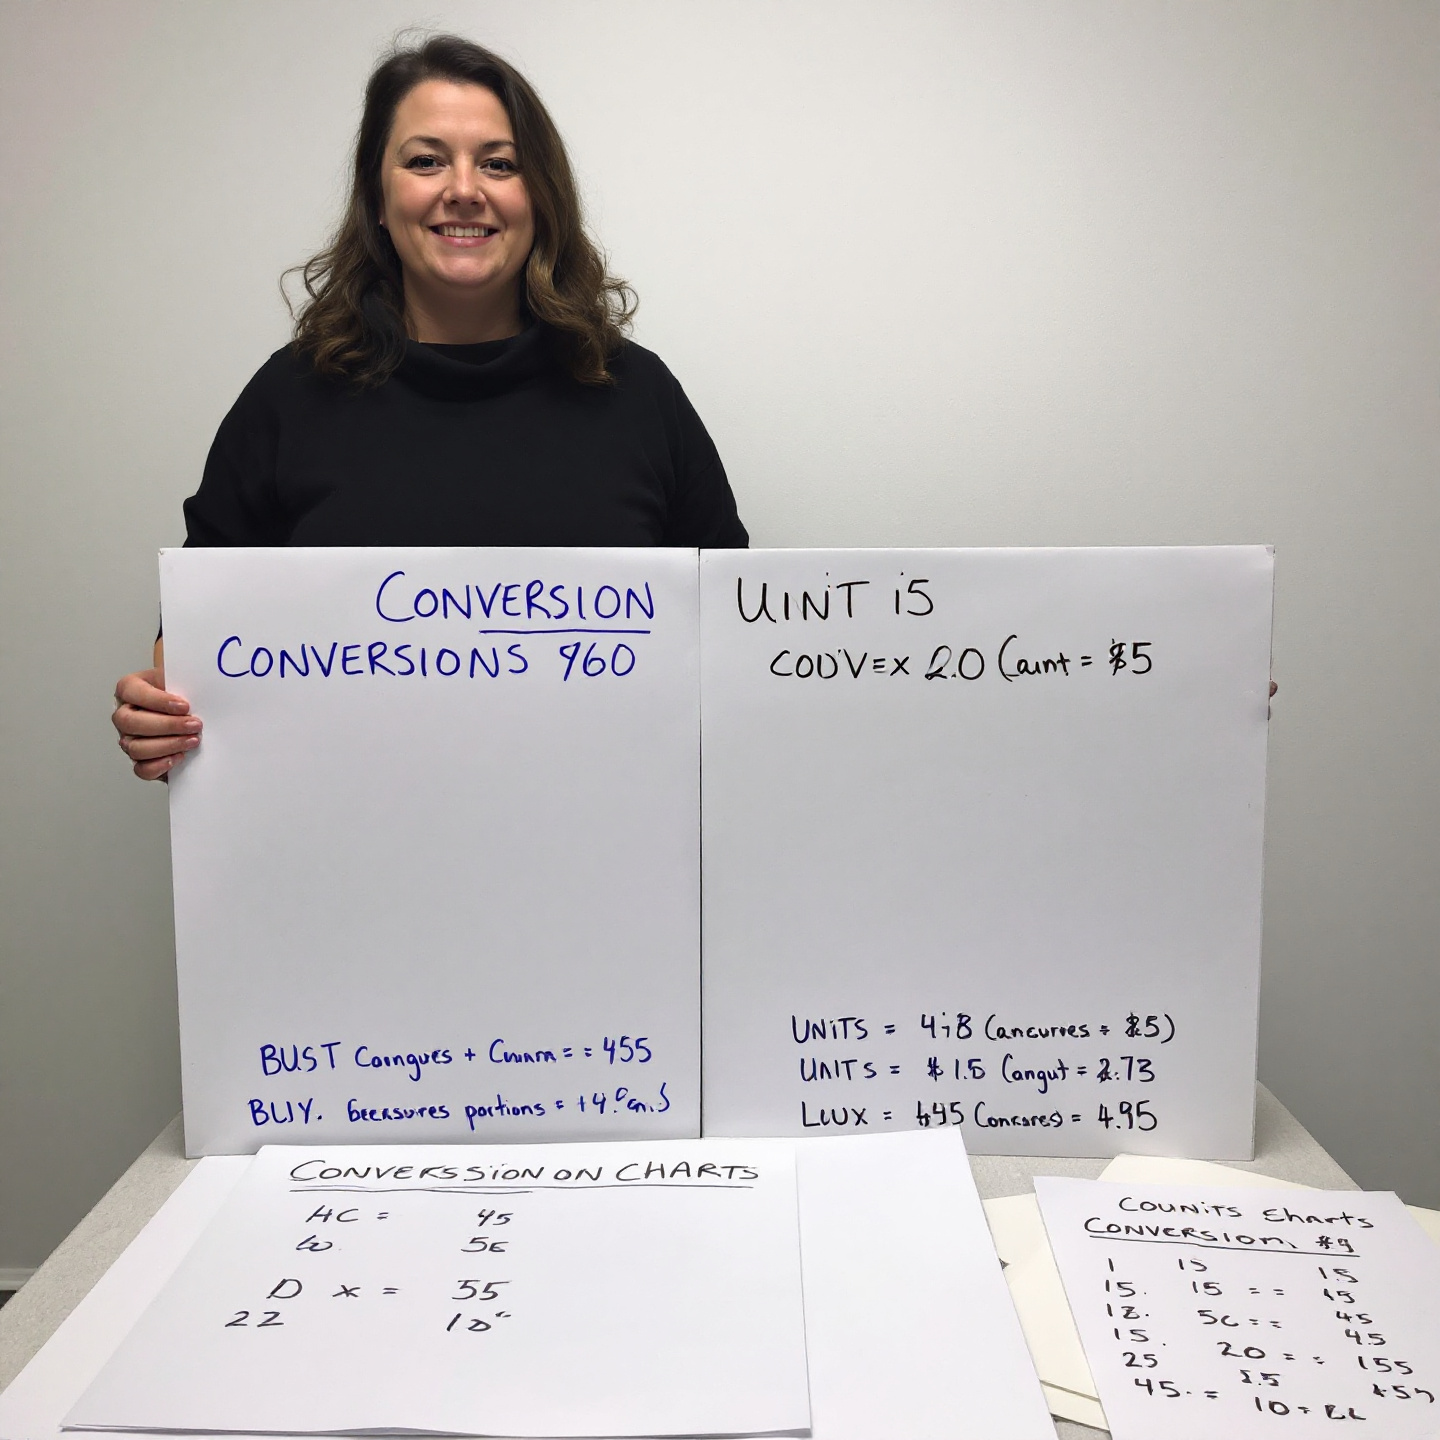 CONVERSION
CONVERSIONS 960
BUST Coingues + Cnunn = = 455
BLIY. Geeasures portions = +4.
UINIT i5
COUVEX 2.0 (aunt = $5
UNITS = 4;8 (ancurves = $5)
UNITS = $1.5 (angut = 2.73
LUUX = $45 (oncares) = 4.95
CONVERSSION ON CHARTS
HC = 45
W. 5E
D x = 55
22 10"
COUNITS Charts
CONVERSION. #9
1 15 15
15. 15 = = 15
18. 5C = = 45
15. 45
25 20 = = 155
45. = 2.5
10 =